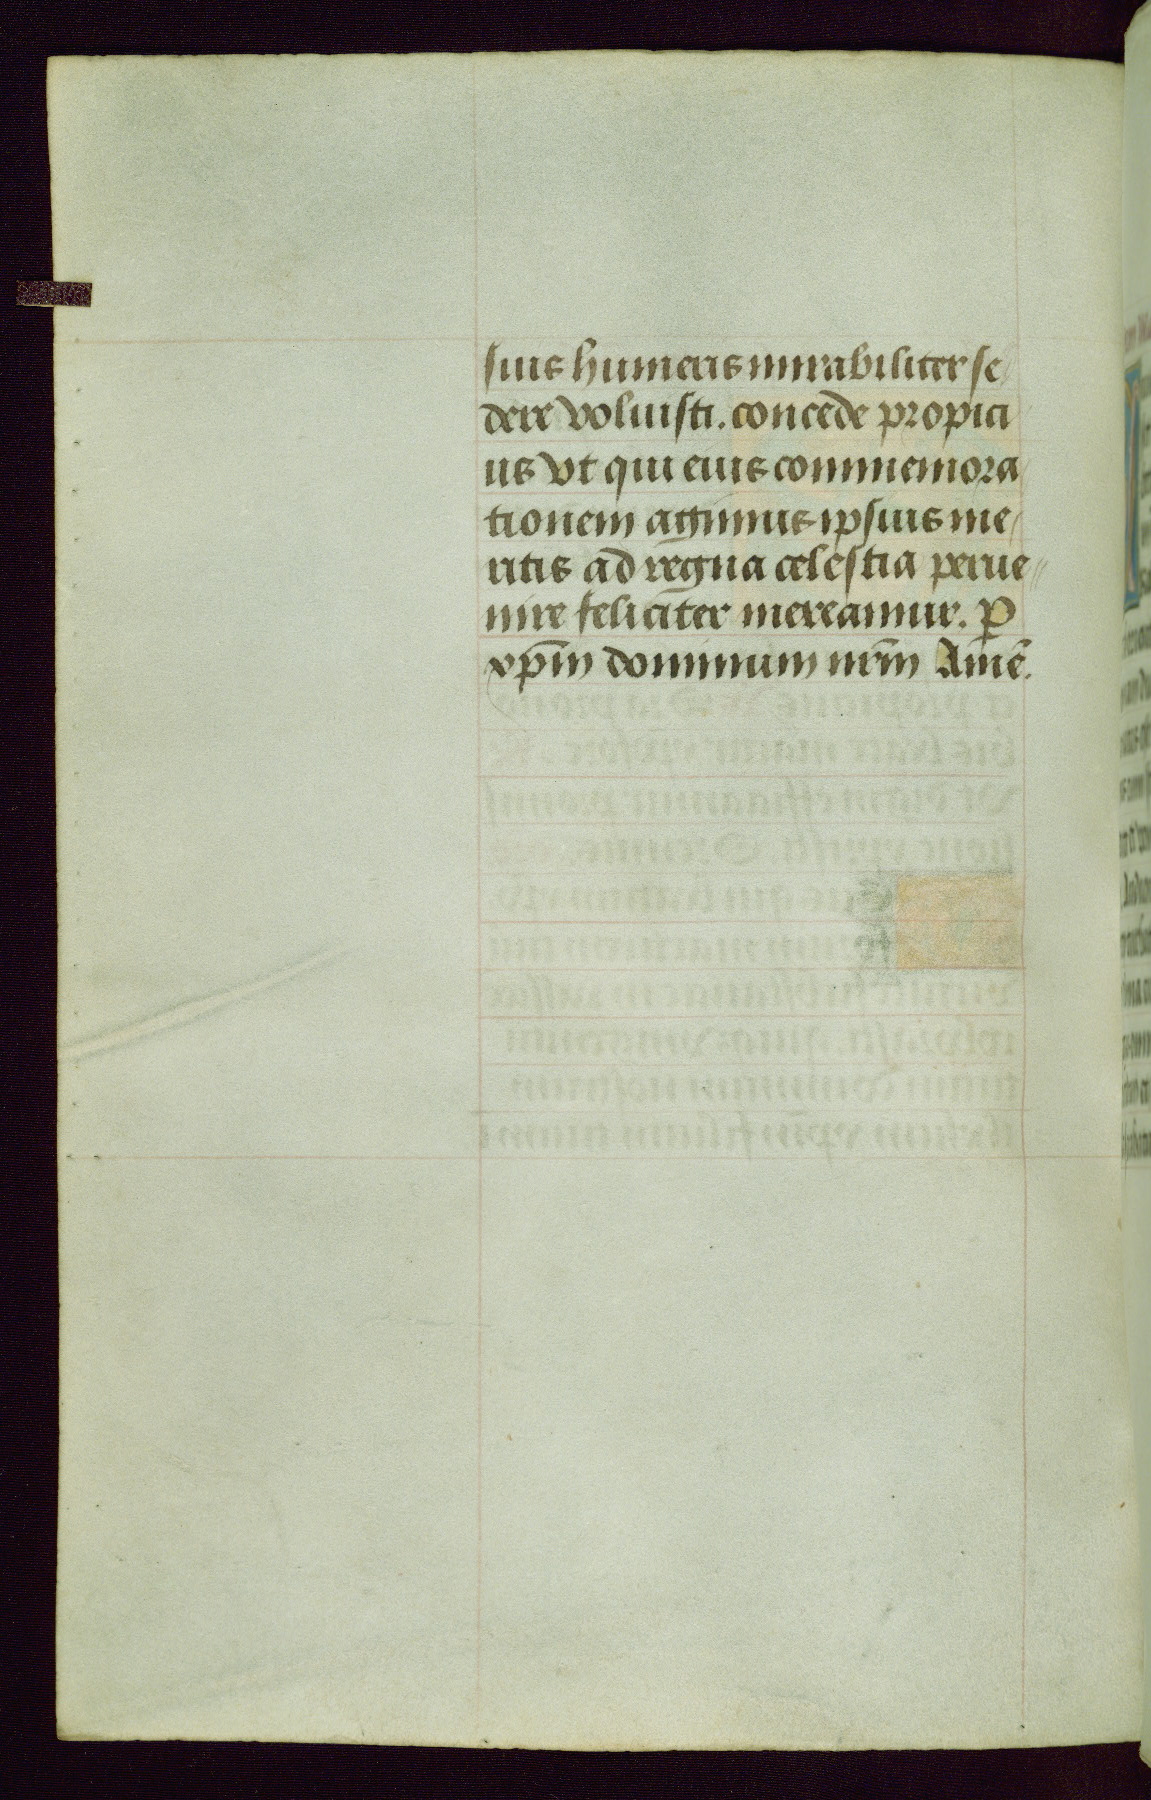 suis humeris mirabiliter se
dere voluisti. concede propici
us vt qui eius commemora
tionem agimus ipsius me
ritis ad regna celestia perue
nire feliciter mereamur. P̄
xp̄m dominum nr̄m Amē.